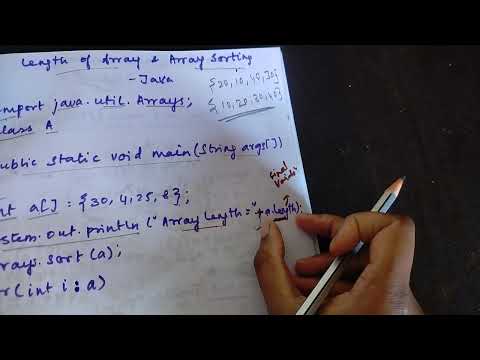 Length of Array & Array Sorting
- Java
{20, 10, 40, 30}
{10, 20, 30, 40}
import java.util.Arrays;
class A
public static void main(String args[])
int a[] = {30, 4, 25, 8};
final
System.out.println("Array Length =" + a.length);
Arrays.sort(a);
for(int i : a)